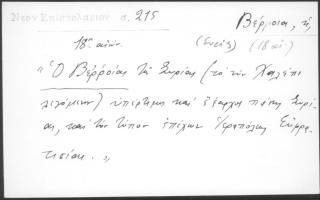 Νεον Επιστολαριον σ. 215
Βέρροια, ἡ
18ος αἰών. (Συρίας) (18 αἰ.)
"Ὁ Βεῤῥοίας τῆς Συρίας (τὸ νῦν Χαλέπι
λεγόμενον) ὑπέρτιμος καὶ ἔξαρχος πάσης Συρί-
ας, καὶ τὸν τόπον ἐπέχων Ἱεραπόλεως Εὐφρα-
τησίας.„